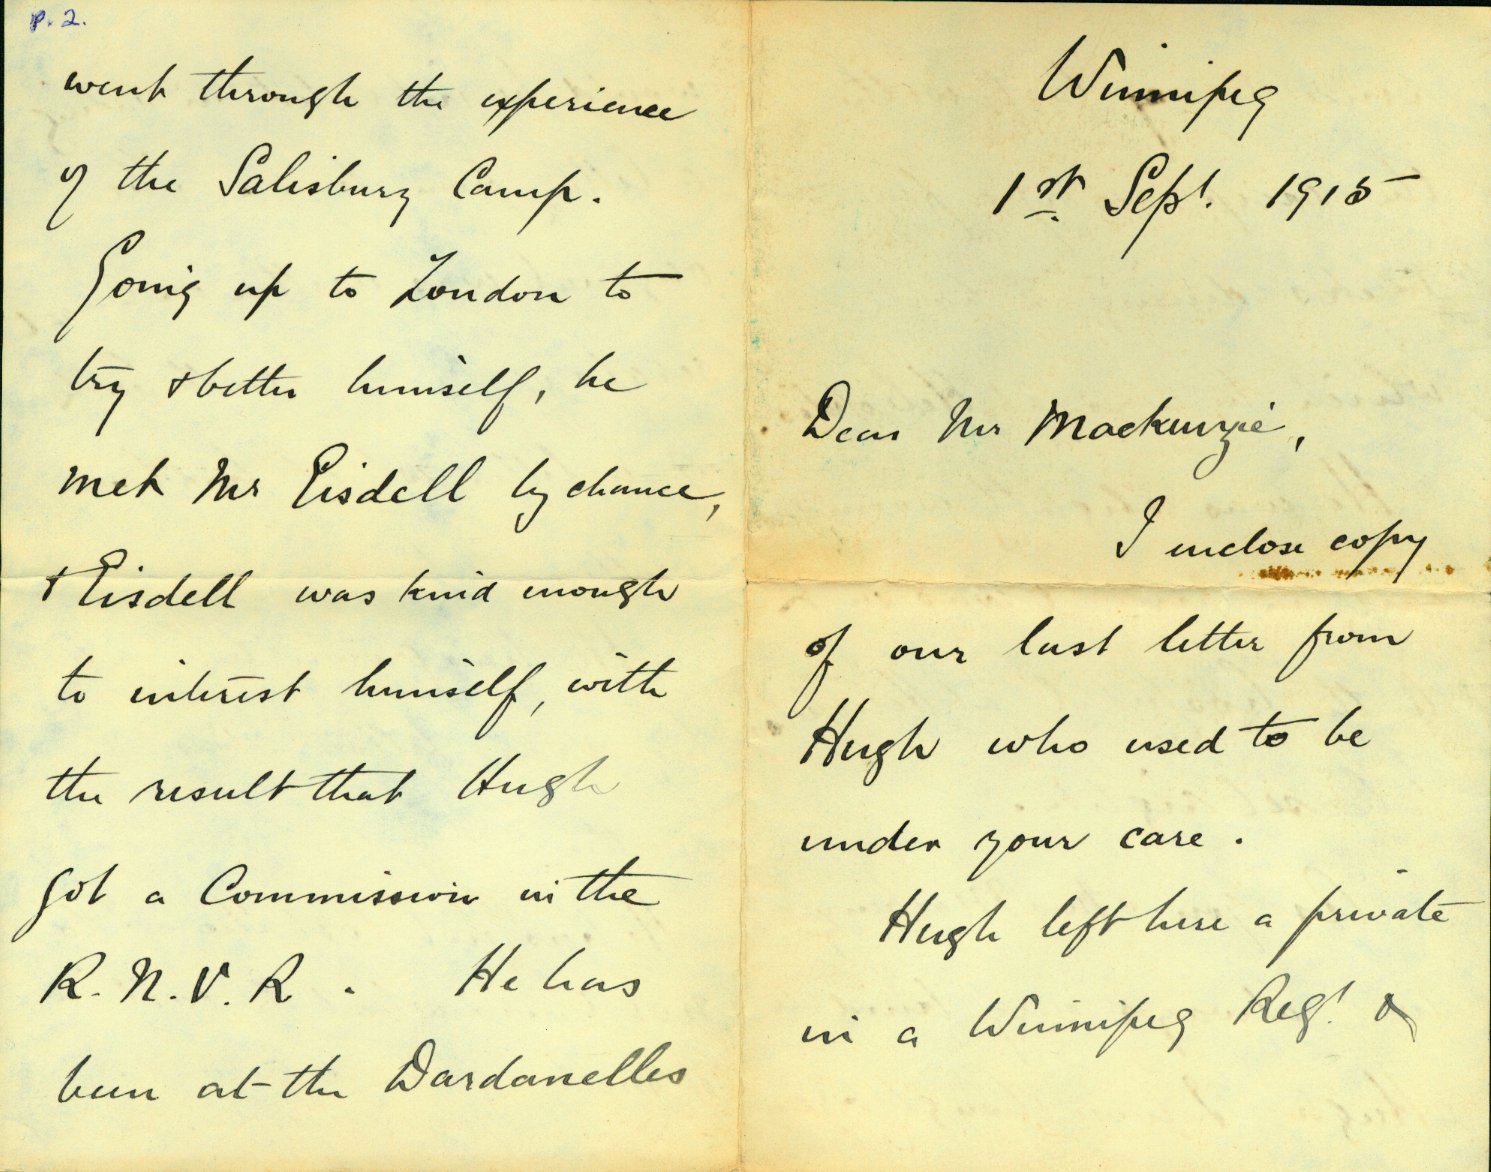 Winnipeg
1st Sept. 1915
Dear Mr Mackenzie,
I inclose copy
of our last letter from
Hugh who used to be
under your care.
Hugh left here a private
in a Winnipeg Regt. &
p. 2.
went through the experience
of the Salisbury Camp.
Going up to London to
try & better himself, he
met Mr Eisdell by chance,
& Eisdell was kind enough
to interest himself, with
the result that Hugh
got a Commission in the
R. N. V. R. He has
been at the Dardanelles